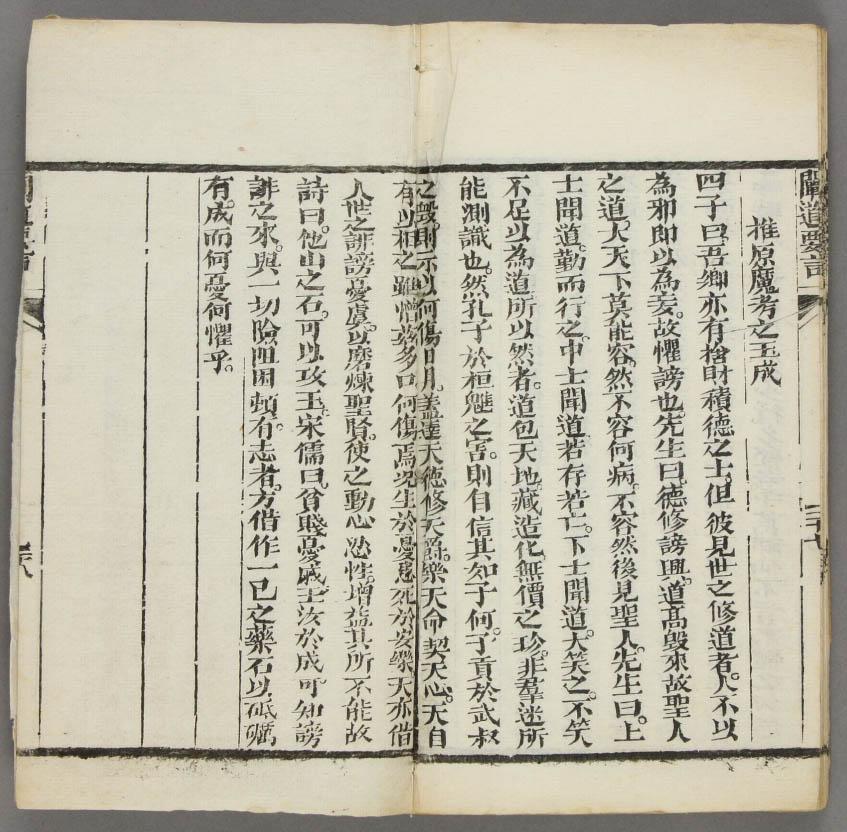 闡道要言
二十七
推原魔考之玉成
四子曰。吾鄉亦有捨財積德之士。但彼見世之修道者。人不以
為邪即以為妄。故懼謗也。先生曰。德修謗興。道高毀來。故聖人
之道。大天下莫能容。然不容何病。不容然後見聖人。先生曰。上
士聞道。勤而行之。中士聞道。若存若亡。下士聞道。大笑之。不笑
不足以為道。所以然者。道包天地。藏造化。無價之珍。非羣迷所
能測識也。然孔子於桓魋之害。則自信其如予何。子貢於武叔
之毀。則示以何傷日月。蓋達天德。修天爵。樂天命。契天心。天自
有以相之。雖憎茲多口。何傷焉。況生於憂患。死於安樂。天亦借
人世之誹謗憂虞。以磨煉聖賢。使之動心忍性。增益其所不能。故
詩曰。他山之石。可以攻玉。宋儒曰。貧賤憂戚。玉汝於成。可知謗
誹之來。與一切險阻困頓。有志者。方借作一己之藥石。以砥礪
有成。而何憂何懼乎。
二十八